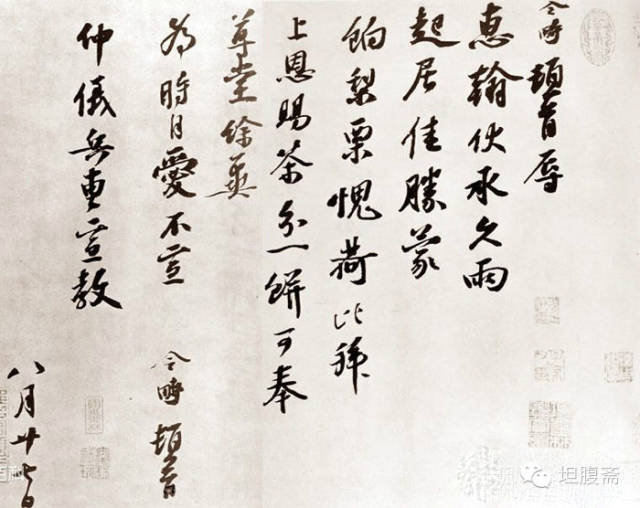 令畤頓首辱
惠翰伏承久雨
起居佳勝蒙
餉梨栗愧荷比拜
上恩賜茶分一餅可奉
尊堂餘冀
為時自愛不宣 令畤頓首
仲儀兵曹宣教
八月廿七日
坦腹斋